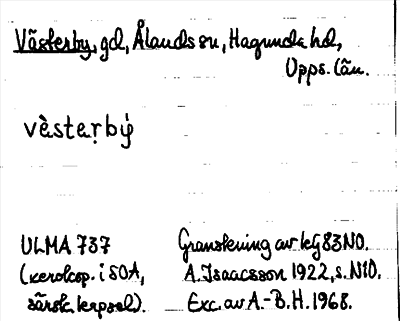 Västerby, gd, Ålands sn, Hagunda hd,
Upps. län.
vèstẹrbý
ULMA 737
(xerokop. i SOA,
särsk. kapsel).
Granskning av kg 83 NO.
A. Isaacsson 1922, s. N10.
Exc. av A.-B. H. 1968.